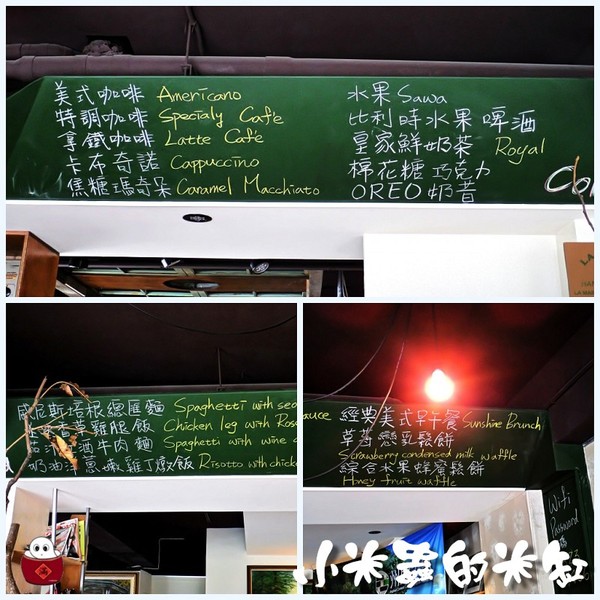 美式咖啡 Americano
特調咖啡 Specialy Café
拿鐵咖啡 Latte Café
卡布奇諾 Cappuccino
焦糖瑪奇朵 Caramel Macchiato
水果 Sawa
比利時水果啤酒
皇家鮮奶茶 Royal
棉花糖巧克力
OREO奶昔
威尼斯培根總匯麵 Spaghetti with seo
香草雞腿飯 Chicken leg with Rose
酒牛肉麵 Spaghetti with wine
奶油洋蔥嫩雞丁燉飯 Risotto with chicke
auce 經典美式早午餐 Sunshine Brunch
草莓戀乳鬆餅
Strawberry condensed milk waffle
綜合水果蜂蜜鬆餅
Honey fruit waffle
Wifi
Password
小米蟲的米缸